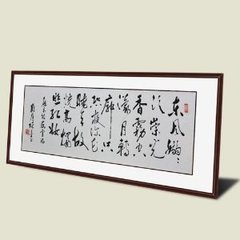 东风嫋嫋
泛崇光
香雾空
濛月转
廊只
恐夜深花
睡去故
烧高烛
照红妆